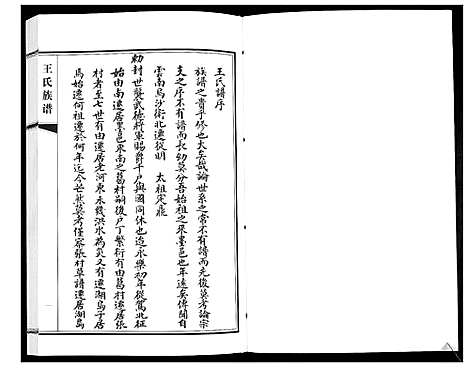 王氏譜序
族譜之貴乎修也大矣哉論世系之常不有譜而先後莫考論宗
支之序不有譜而長幼莫分吾始祖之來墨邑也年遠矣傳聞自
雲南烏沙衛北遷從明 太祖定鼎
勅封世襲武德將軍賜爵千戶與國同休也迨永樂初年從駕北征
始由南遷居墨邑東南之葛村嗣後戶丁繁衍有由葛村遷居張
村者至七世有由遷居老河東未幾洪水為災又有遷湖島子居
焉始遷何祖遷於何年迄今世然莫考僅察張村草譜遷居湖島
王氏族譜
一